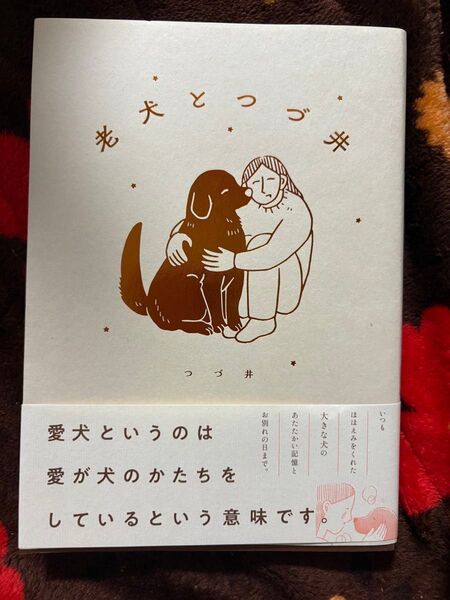 老犬とつづ井
つづ井
いつも
ほほえみをくれた
大きな犬の
あたたかい記憶と
お別れの日まで。
愛犬というのは
愛が犬のかたちを
しているという意味です。